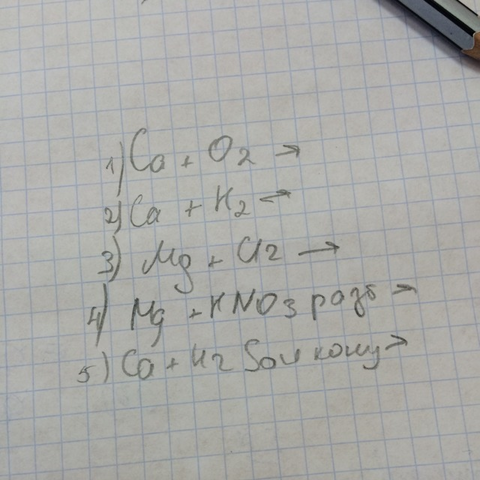 1) Ca + O2 →
2) Ca + H2 →
3) Mg + Cl2 →
4) Mg + HNO3 разб →
5) Ca + H2SO4 конц →